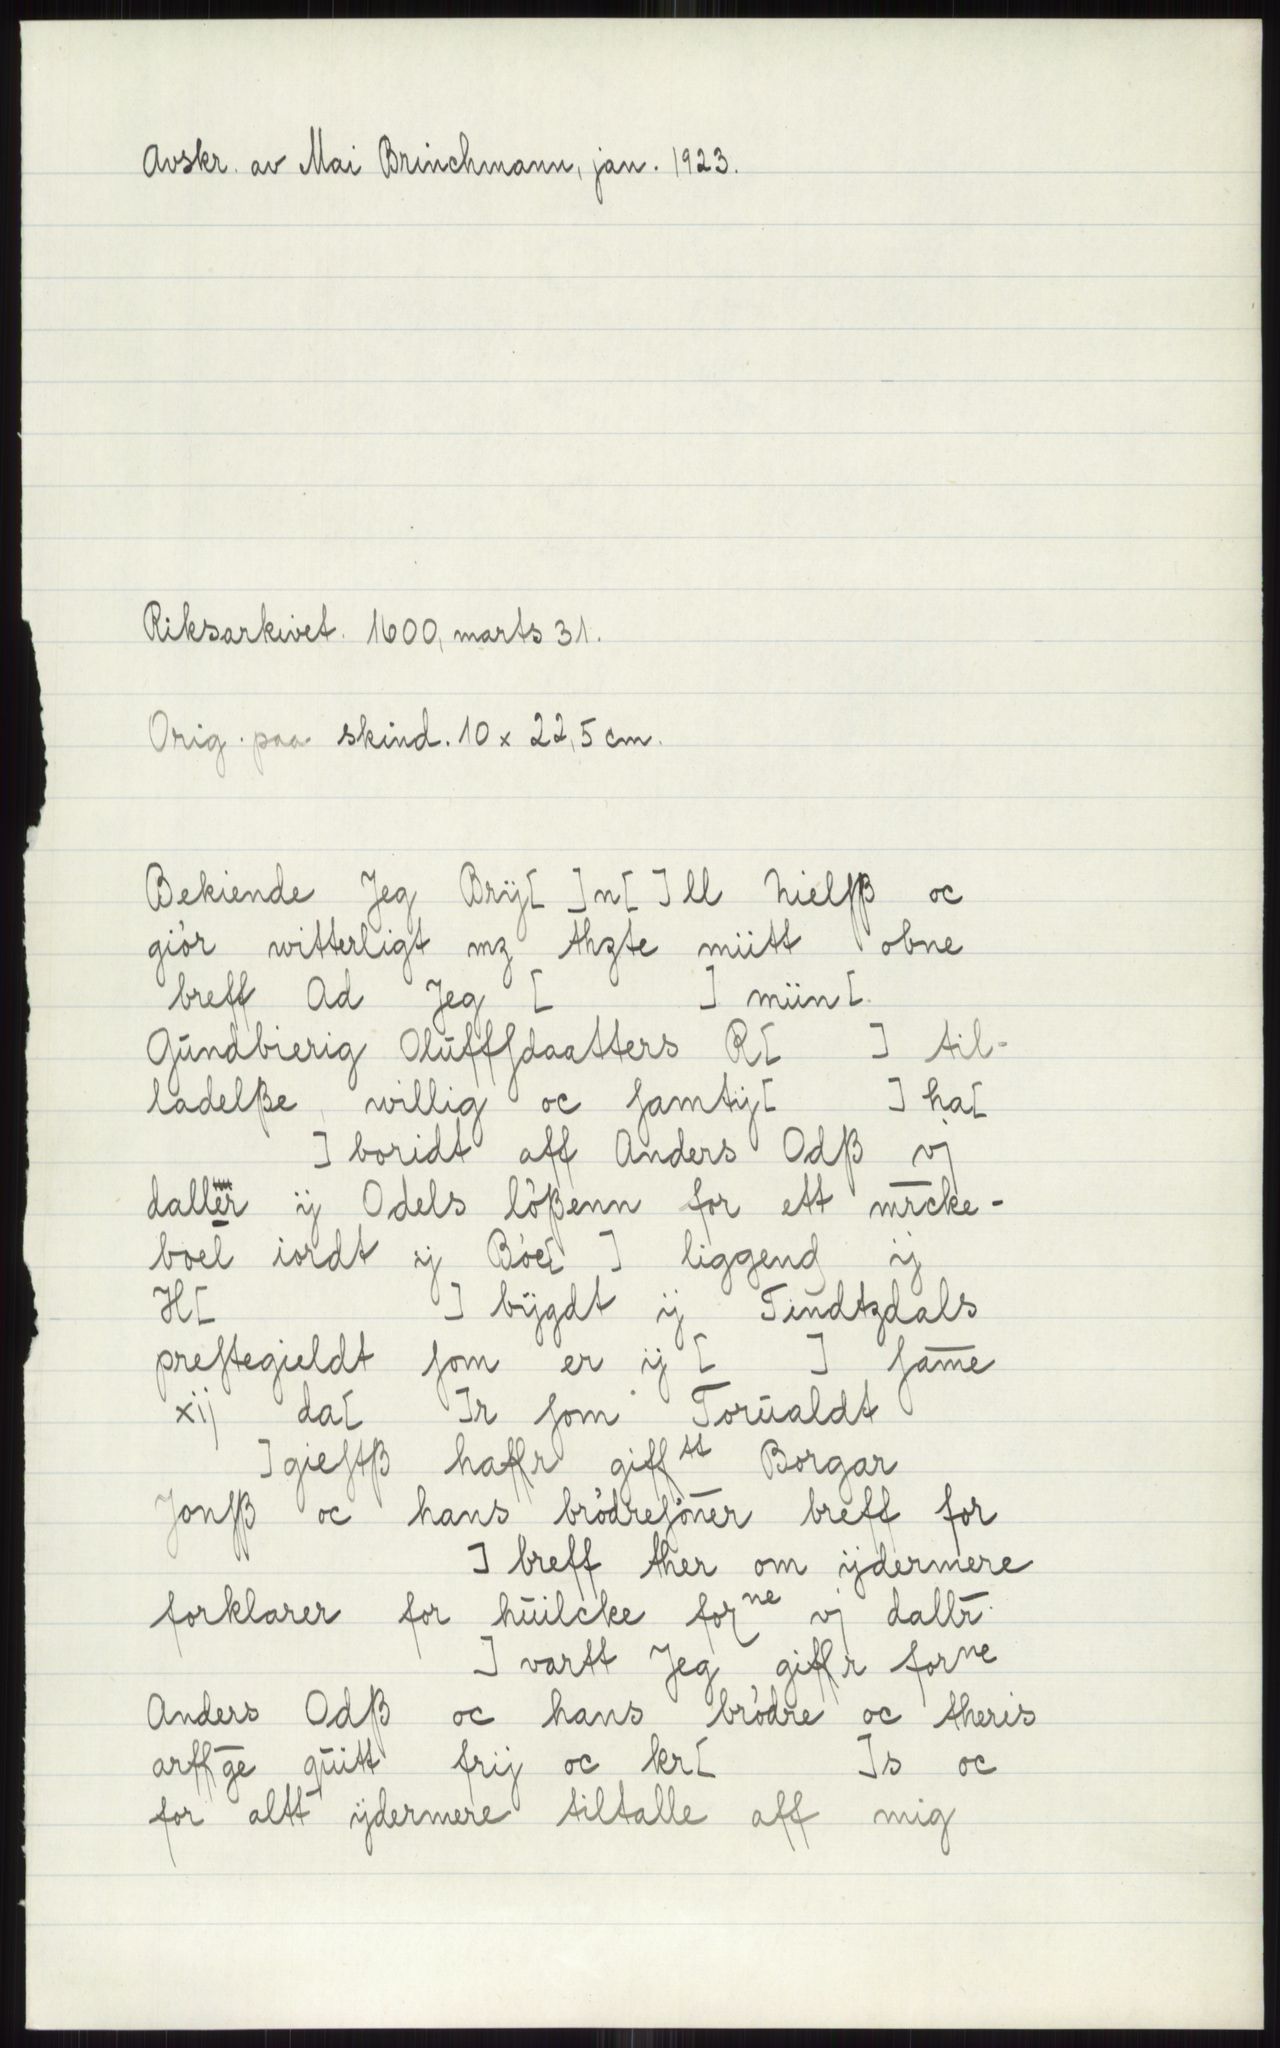 Avskr. av Mai Brinchmann, jan. 1923.
Riksarkivet. 1600, marts 31.
Orig. paa skind. 10 x 22,5 cm.
Bekiende Jeg Brÿ[ ]n[ ]ll Nielſß oc
giör witterligt mꝫ thꝫte miitt obne
breff Ad Jeg [ ] miin[
Gūndbierig Olūffſdaatters R[ ] til-
ladelße willig oc ſamtÿ[ ] ha[
] boridt aff Anders Odß vj
daller ÿ Odels lößenn for ett mr̄cke-
boel iordt ÿ Böe[ ] liggend ÿ
H[ ] bÿgdt ÿ Tindtꝫdals
preſtegieldt ſom er ÿ [ ] ſam̄e
xij da[ ]r ſom Torūaldt
]gieſtß haffr giffᵗᵗ Borgar
Jonſß oc hans brödreſön̄er breff for
] breff ther om ÿdermere
forklarer for hūilcke forⁿᵉ vj dallr̄
] vartt Jeg giffr forⁿᵉ
Anders Odß oc hans brödre oc theris
arffḡe qūitt frij oc kr[ ]s oc
for altt ÿdermere tiltalle aff mig